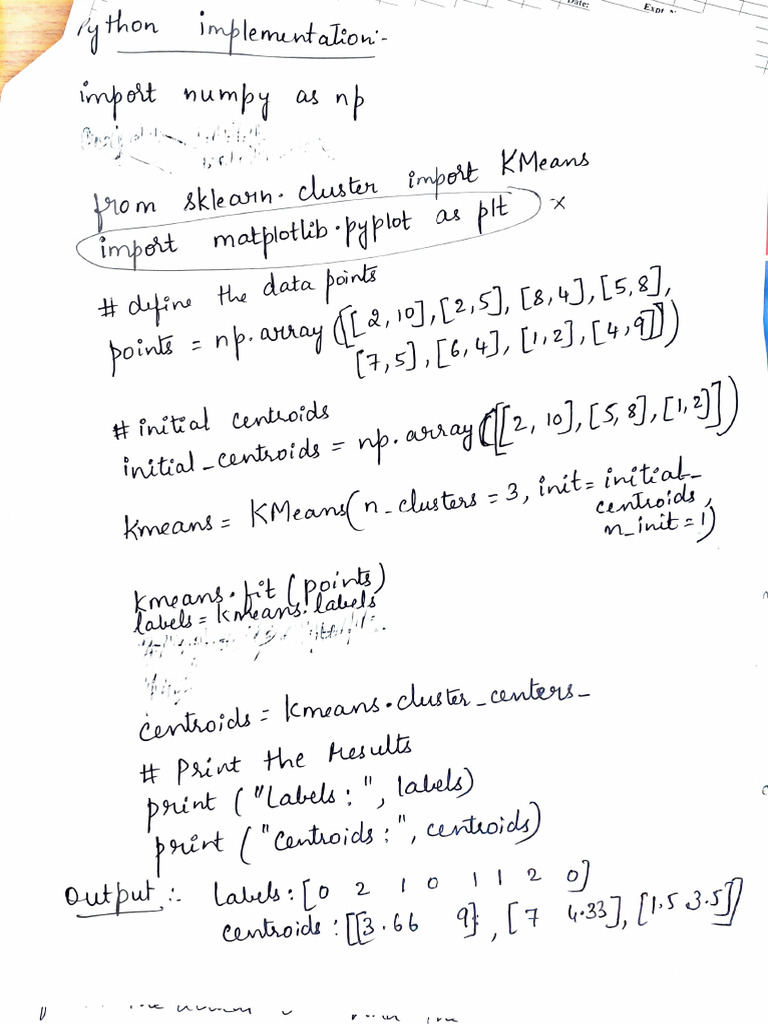 Date:
Expt. N
Python implementation:-
import numpy as np
from sklearn.cluster import KMeans
import matplotlib.pyplot as plt ×
# define the data points
points = np.array([[2, 10], [2, 5], [8, 4], [5, 8],
[7, 5], [6, 4], [1, 2], [4, 9]])
# initial centroids
initial_centroids = np.array([[2, 10], [5, 8], [1, 2]])
kmeans = KMeans(n_clusters = 3, init = initial_
centroids,
n_init = 1)
kmeans.fit (points)
labels = kmeans.labels
centroids = kmeans.cluster_centers_
# Print the results
print ("Labels:", labels)
print ("Centroids:", centroids)
Output :- Labels: [0 2 1 0 1 1 2 0]
centroids: [[3.66 9], [7 4.33], [1.5 3.5]]